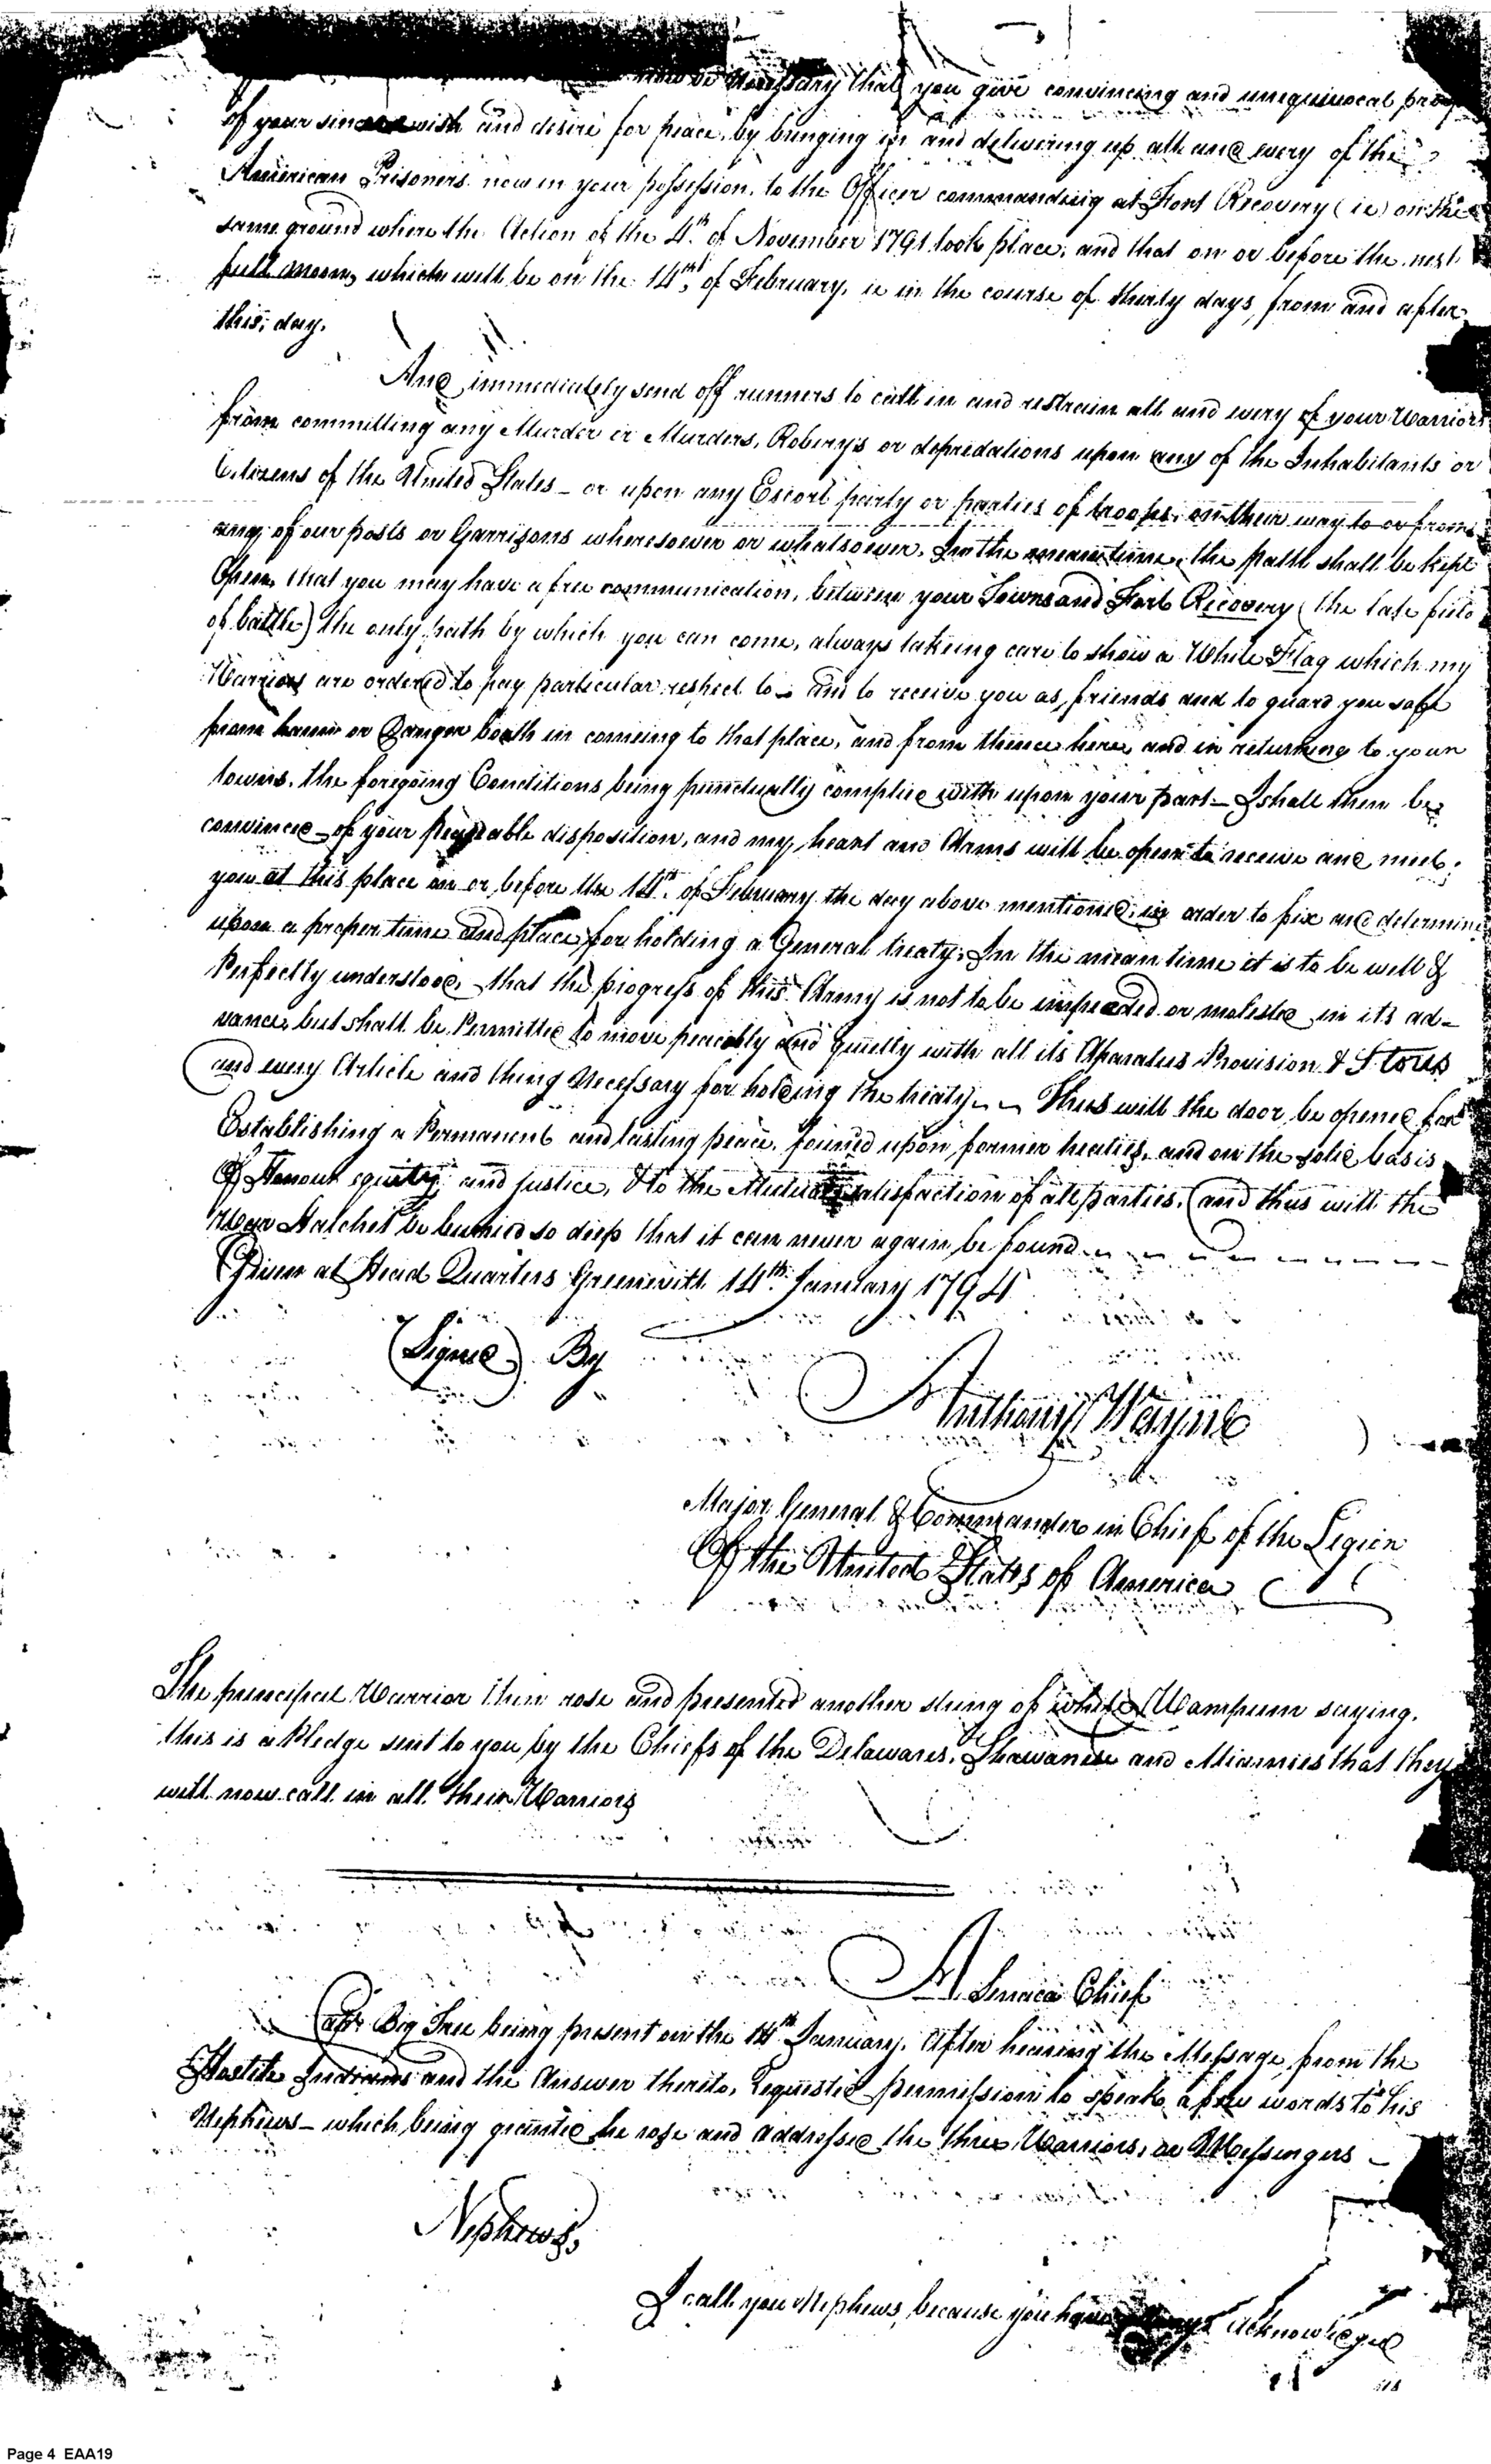 now be Necessary that you give convincing and unequivocal proof
of your sincere wish and desire for peace, by bringing in and delivering up all and every of the
American Prisoners now in your possession, to the Officer commanding at Fort Recovery (ie) on the
same ground where the Action of the 4th of November 1791 took place, and that on or before the next
full moon, which will be on the 14th of February, ie in the course of thirty days, from and after
this, day.
And immediately send off runners to call in and restrain all and every of your Warriors
from committing any Murder or Murders, Robery's or depredations upon any of the Inhabitants or
Citizens of the United States _ or upon any Escort party or parties of troops, on their way to or from
any of our posts or Garrisons wheresoever or whatsoever. In the mean time, the path shall be kept
Open, that you may have a free communication, between your Towns and Fort Recovery (the late field
of battle) the only path by which you can come, always takeing care to show a White Flag which my
Warriors are ordered to pay particular respect to _ and to receive you as, friends and to guard you safe
from harm or Danger both in comeing to that place, and from thence here, and in returning to your
towns. the foregoing Conditions being punctually complied with upon your part _ I shall then be
convinced _ of your peaceable disposition, and my heart and Arms will be open to receive and meet
you at this place on or before the 14th of February the day above mentioned, in order to fix and determine
upon a proper time and place, for holding a General treaty, In the mean time it is to be well &
Perfectly understood, that the progress of this Army is not to be impeeded or molested in its ad-
vance, but shall be Permitted to move peaceably and quietly with all its Aparatus Provision & Stores
and every Article and thing Necessary for holding the treaty _ _ Thus will the door be opened for
Establishing a Permanent and lasting peace, founded upon former treaties, and on the solid basis
Of Honour equity, and justice, & to the Mutual satisfaction of all parties, and thus will the
War Hatchet be burried so deep that it can never again be found
Given at Head Quarters Greeneville 14th January 1794
(Signed) By
Anthony Wayne
Major General & Commander in Chief of the Legion
Of the United States of America
The principal Warrior then rose and presented another string of white Wampum saying,
this is a Pledge sent to you by the Chiefs of the Delawares, Shawanese and Miamies that they
will now call in all their Warriors
A Seneca Chief
Capt Big Tree being present on the 14th January. After hearing the Message, from the
Hostile Indians and the Answer thereto, Requested permission to speak a few words to his
Nephews _ which being granted he rose and addressed the three Warriors, or Messengers _
Nephews,
I call you Nephews, because you have always acknowledged
us
Page 4 EAA19